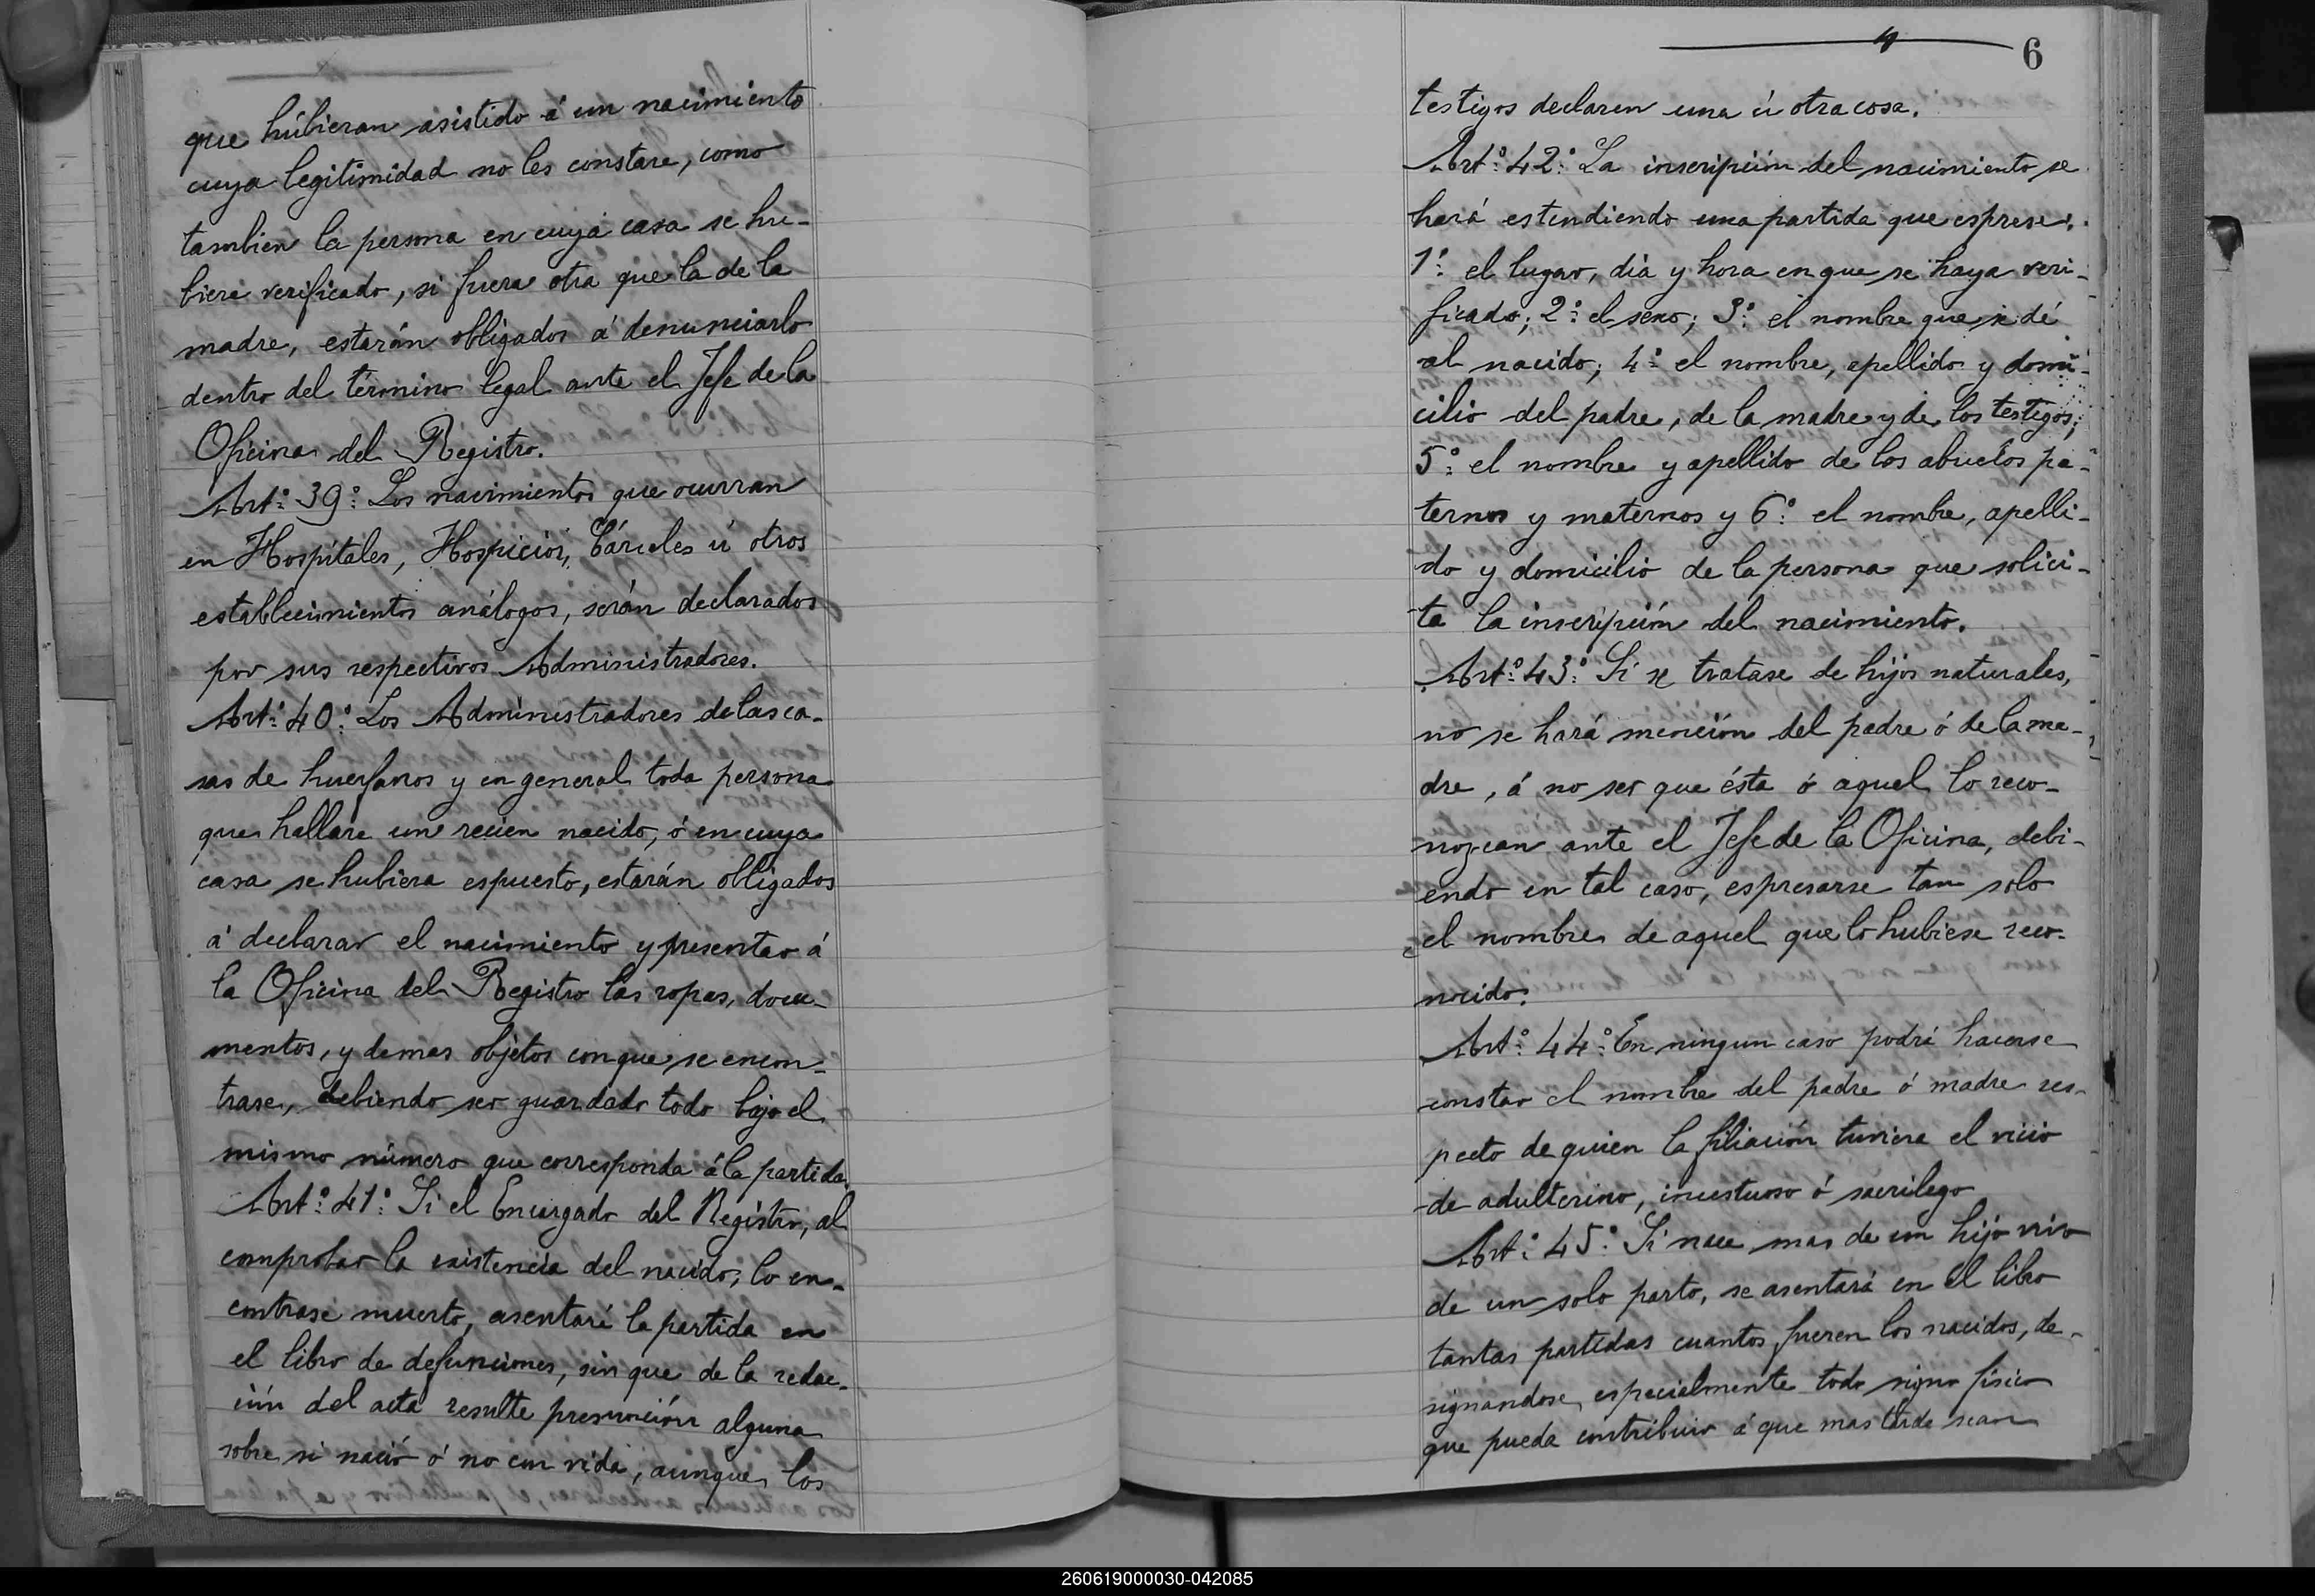 que húbieran asistido á un nacimiento
cuya legitimidad no les constare, como
tambien la persona en cuya casa se hu-
biera verificado, si fuera otra que la de la
madre, estarán obligados á denunciarlo
dentro del término legal ante el Jefe de la
Oficina del Registro.
Art.º 39.º Los nacimientos que ocurran
en Hospitales, Hospicios, Cárceles ú otros
establecimientos análogos, serán declarados
por sus respectivos Administradores.
Art.º 40.º Los Administradores de las ca-
sas de huerfanos y en general toda persona
que hallare un recien nacido, ó en cuya
casa se hubiera espuesto, estarán obligados
á declarar el nacimiento y presentar á
la Oficina del Registro las ropas, docu-
mentos, y demas objetos con que se encon-
trase, debiendo ser guardado todo bajo el
mismo número que corresponda á la partida.
Art.º 41.º Si el Encargado del Registro, al
comprobar la existencia del nacido, lo en-
contrase muerto, asentará la partida en
el libro de defunciones, sin que de la redac-
ción del acta resulte presunción alguna
sobre si nació ó no con vida, aunque los
6
testigos declaren una ú otra cosa.
Art.º 42.º La inscripción del nacimiento se
hará estendiendo una partida que esprese:
1.º el lugar, dia y hora en que se haya veri-
ficado; 2.º el sexo; 3.º el nombre que se dé
al nacido; 4.º el nombre, apellido y domi-
cilio del padre, de la madre y de los testigos;
5.º el nombre y apellido de los abuelos pa-
ternos y maternos y 6.º el nombre, apelli-
do y domicilio de la persona que solici-
ta la inscripción del nacimiento.
Art.º 43.º Si se tratase de hijos naturales,
no se hará mención del padre ó de la ma-
dre, á no ser que ésta ó aquel lo reco-
nozcan ante el Jefe de la Oficina, debi-
endo en tal caso, espresarse tan solo
el nombre de aquel que lo hubiese reco-
nocido.
Art.º 44.º En ningun caso podrá hacerse
constar el nombre del padre ó madre res-
pecto de quien la filiación tuviera el vicio
de adulterino, incestuoso ó sacrilego
Art.º 45.º Si nace mas de un hijo vivo
de un solo parto, se asentará en el libro
tantas partidas cuantos fueren los nacidos, de-
signandose especialmente todo signo físico
que pueda contribuir á que mas tarde sean
260619000030-042085